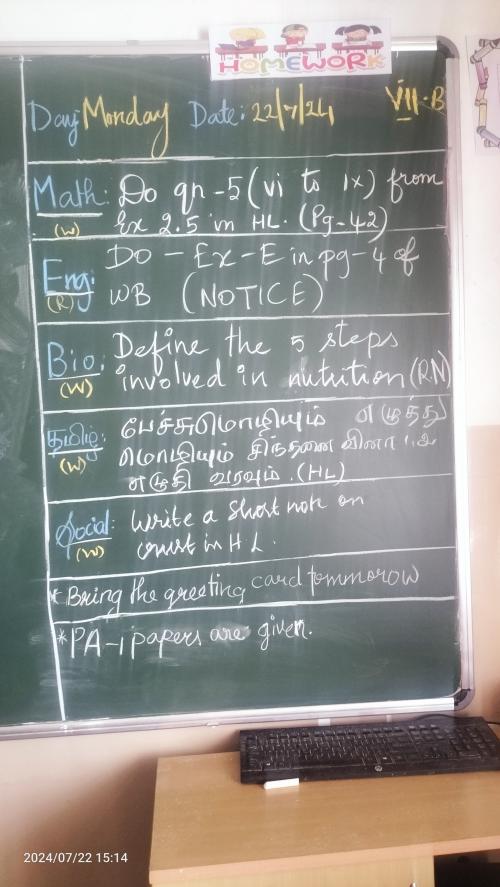 HOMEWORK
Day: Monday Date: 22/7/24 VII-B
Math: Do qn-5 (vi to ix) from
(W) Ex 2.5 in HL. (Pg-42)
Eng: Do - Ex-E in pg-4 of
(R) WB (NOTICE)
Bio: Define the 5 steps
(W) involved in nutrition (R.N)
தமிழ்: பேச்சுமொழியும் எழுத்து
(W) மொழியும் சிந்தனை வினா
எழுதி வரவும். (HL)
Social: Write a short note on
(W) in HL.
* Bring the greeting card tommorow
* PA-1 papers are given.
2024/07/22 15:14